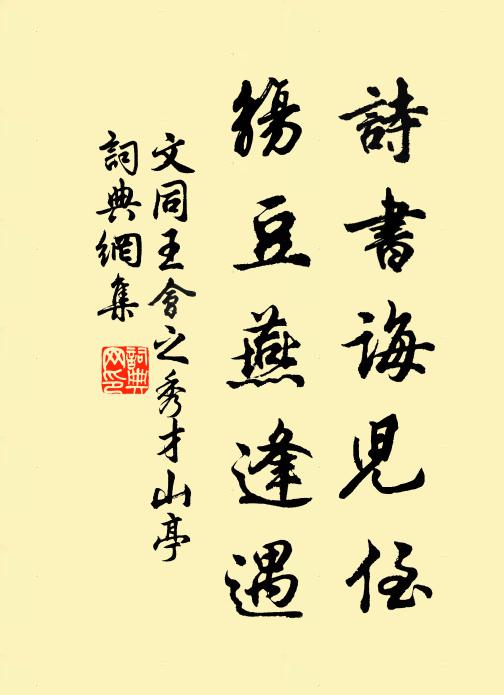 詩書誨兒侄
觴豆燕逢遇
文同王會之秀才山亭
詞典網集
詞典网印